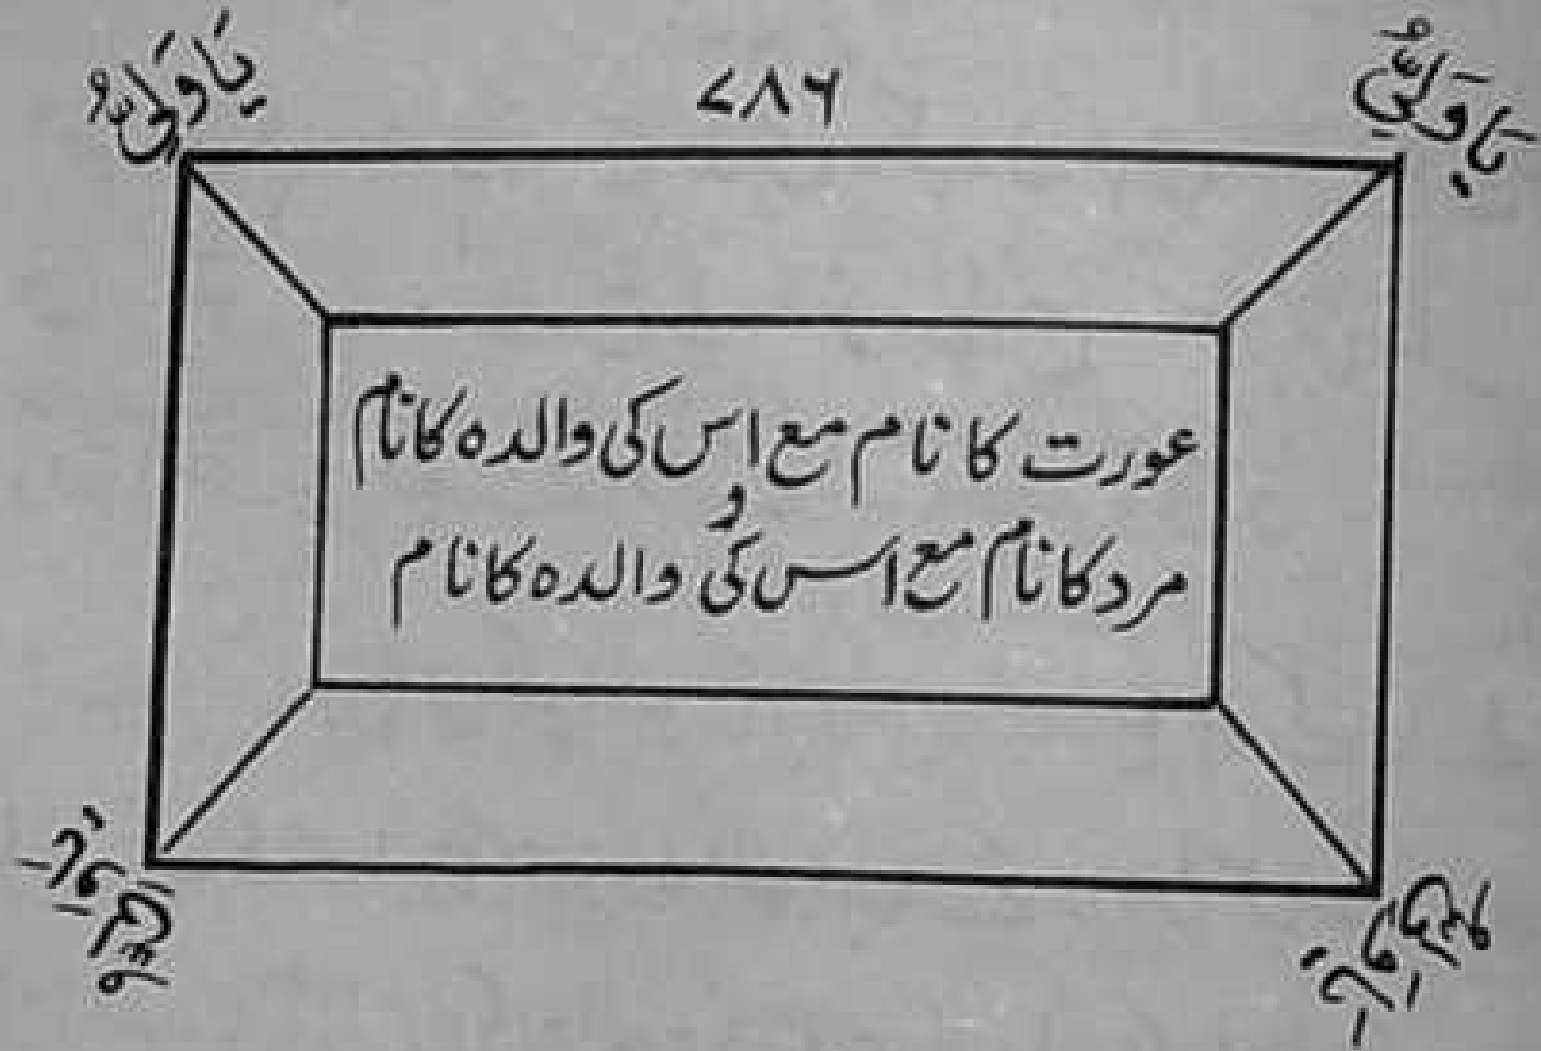 ۷۸۶
یَا وَلِیُّ
یَا وَلِیُّ
عورت کا نام مع اس کی والدہ کا نام
و
مرد کا نام مع اس کی والدہ کا نام
یَا وَلِیُّ
یَا وَلِیُّ